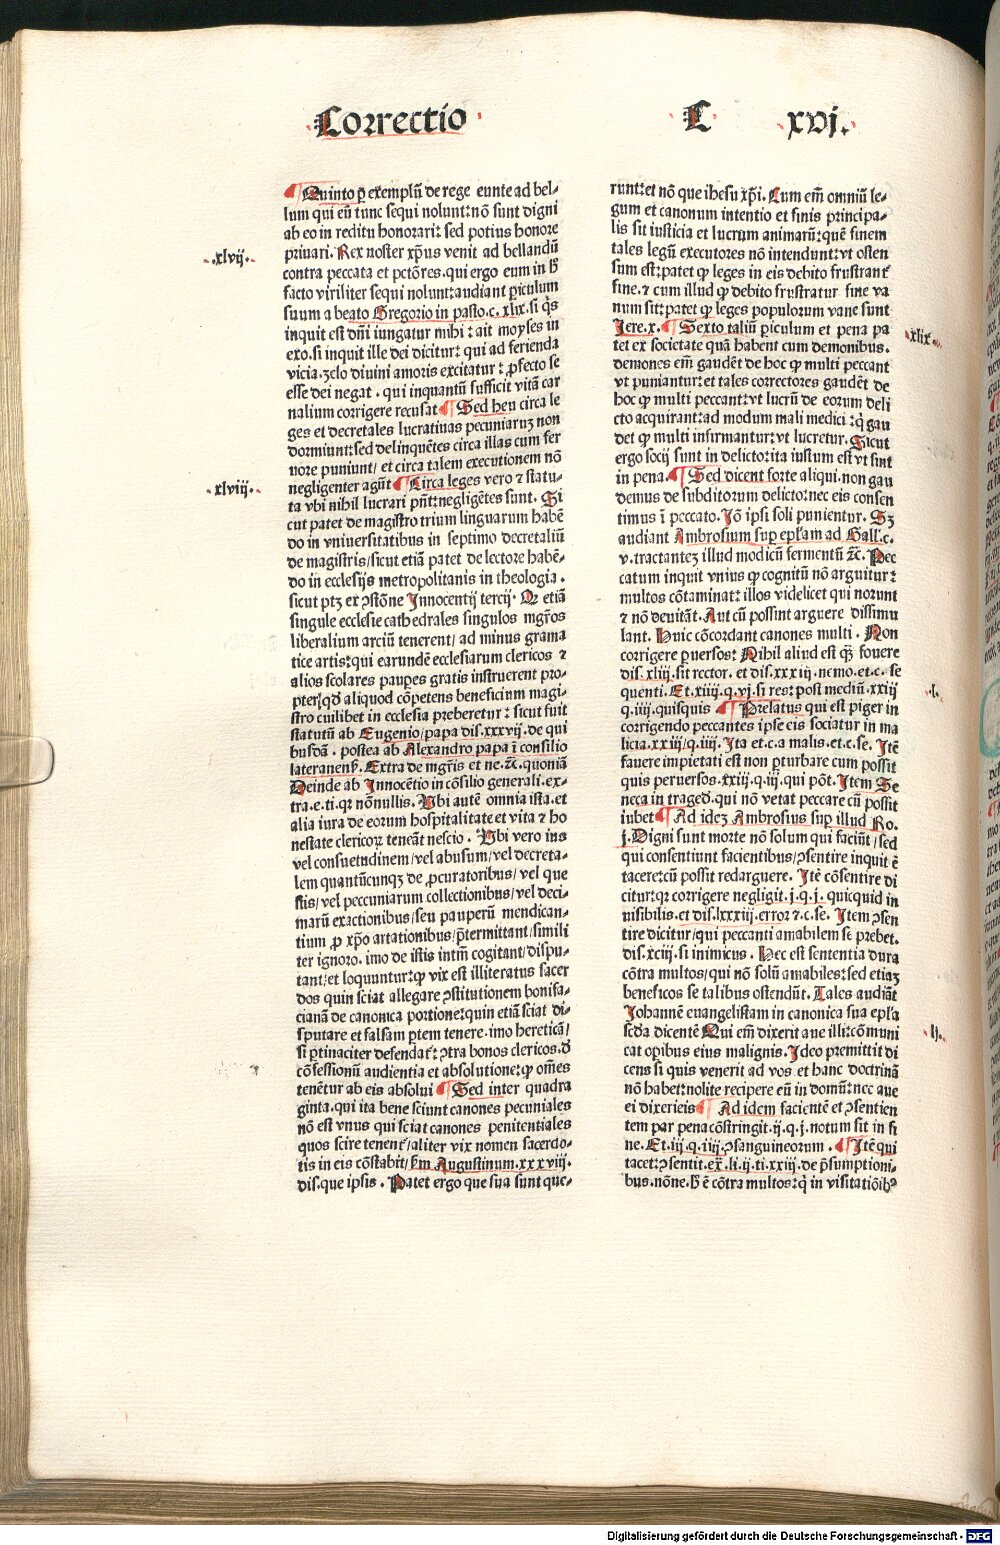 Correctio C xvj.
¶ Quinto ꝑ exemplũ de rege eunte ad bel⸗
lum qui eũ tunc sequi nolunt: nõ sunt digni
ab eo in reditu honorari: sed potius honore
priuari. Rex noster xp̃us venit ad bellandũ
.xlvij.
contra peccata et pctõres. qui ergo eum in h̃
facto viriliter sequi nolunt: audiant ꝑiculum
suum a beato Gregorio in pasto. c. xlix. si q̃s
inquit est dñi iungatur mihi: ait moyses in
exo. si inquit ille dei dicitur: qui ad ferienda
vicia. zelo diuini amoris excitatur: ꝓfecto se
esse dei negat. qui inquantũ sufficit vitã car
nalium corrigere recusat ¶ Sed heu circa le
ges et decretales lucratiuas pecuniaruz non
dormiunt: sed delinquẽtes circa illas cum fer
uore puniunt/ et circa talem executionem nõ
negligenter agũt ¶ Circa leges vero ⁊ statu⸗
.xlviij.
ta vbi nihil lucrari pñt: negligẽtes sunt. Si
cut patet de magistro trium linguarum habẽ
do in vniuersitatibus in septimo decretaliũ
de magistris/ sicut etiã patet de lectore habẽ⸗
do in ecclesijs metropolitanis in theologia.
sicut ptz ex ꝯstõne Innocentij tercij. Q etiã
singule ecclesie cathedrales singulos mgr̃os
liberalium arciũ tenerent/ ad minus grama
tice artis: qui earundẽ ecclesiarum clericos ⁊
alios scolares paupes gratis instruerent pro⸗
pter qd̃ aliquod cõpetens beneficium magi⸗
stro cuilibet in ecclesia preberetur: sicut fuit
statutũ ab Eugenio/ papa dis. xxxvij. de qui
busdã. postea ab Alexandro papa ĩ consilio
lateranens̃. Extra de mgr̃is et ne. ⁊c̃. quoniã
Deinde ab Innocẽtio in cõsilio generali. ex⸗
tra. e. ti. qꝛ nõnullis. Vbi autẽ omnia ista. et
alia iura de eorum hospitalitate et vita ⁊ ho
nestate clericoꝝ teneãt nescio. Vbi vero ius
vel consuetudinem/ vel abusum/ vel decreta⸗
lem quantũcunqꝫ de ꝓcuratoribus/ vel que
stis/ vel peccuniarum collectionibus/ vel deci⸗
marũ exactionibus/ seu pauperũ mendican⸗
tium ꝓ xp̃o artationibus/ p̃termittant/ simili
ter ignoro. imo de istis intm̃ cogitant/ dispu⸗
tant/ et loquuntur: ꝙ vix est illiteratus sacer
dos quin sciat allegare ꝯstitutionem bonifa⸗
cianã de canonica portione: quin etiã sciat di⸗
sputare et falsam ptem tenere. imo heretică/
si ꝑtinaciter defendat̃: ꝯtra bonos clericos. d̃
cõfessionũ audientia et absolutione: ꝙ om̃es
tenẽtur ab eis absolui ¶ Sed inter quadra
ginta. qui ita bene sciunt canones pecuniales
nõ est vnus qui sciat canones penitentiales
quos scire tenent̃/ aliter vix nomen sacerdo⸗
tis in eis cõstabit/ s̃m Augustinum. xxxviij.
dis. que ipsis. Patet ergo que sua sunt que⸗
runt: et nõ que ihesu xp̃i. Cum em̃ omniũ le⸗
gum et canonum intentio et finis principa⸗
lis sit iusticia et lucrum animarũ: quẽ finem
tales legũ executores nõ intendunt: vt osten
sum est: patet ꝙ leges in eis debito frustrant̃
fine. ⁊ cum illud ꝙ debito frustratur fine va
num sit: patet ꝙ leges populorum vane sunt
Jere. x. ¶ Sexto taliũ ꝑiculum et pena pa
.xlix.
tet ex societate quã habent cum demonibus.
demones em̃ gaudẽt de hoc ꝙ multi peccant
vt puniantur: et tales correctores gaudẽt de
hoc ꝙ multi peccant: vt lucrũ de eorum deli
cto acquirant: ad modum mali medici: q̃ gau
det ꝙ multi infirmantur: vt lucretur. Sicut
ergo socij sunt in delicto: ita iustum est vt sint
in pena. ¶ Sed dicent forte aliqui. non gau
demus de subditorum delicto: nec eis consen
timus ĩ peccato. Jõ ipsi soli punientur. Sz
audiant Ambrosium suꝑ epl̃am ad Gall. c.
v. tractantez illud modicũ fermentũ ⁊c̃. Pec
catum inquit vnius ꝙ cognitũ nõ arguitur:
multos cõtaminat: illos videlicet qui norunt
⁊ nõ deuitãt. Aut cũ possint arguere dissimu
lant. Huic cõcordant canones multi. Non
corrigere ꝑuersos: Nihil aliud est q̃ꝫ fouere
dis. xliij. sit rector. et dis. xxxiij. nemo. et. c. se
quenti. Et. xiiij. q. vj. si res: post mediũ. xxiij
.l.
q. iiij. quisquis ¶ Prelatus qui est piger in
corrigendo peccantes ipse eis sociatur in ma
licia. xxiij/ q. iiij. Ita et. c. a malis. et. c. se. Itẽ
fauere impietati est non ꝑturbare cum possit
quis peruersos. xxiij. q. iij. qui põt. Item Se
neca in traged. qui nõ vetat peccare cũ possit
iubet ¶ Ad idez Ambrosius suꝑ illud Ro.
j. Digni sunt morte nõ solum qui faciũt/ sed
qui consentiunt facientibus/ ꝯsentire inquit ẽ
tacere: cũ possit redarguere. Itẽ cõsentire di
citur: qꝛ corrigere negligit. j. q. j. quicquid in
uisibilis. et dis. lxxxiij. error ⁊. c. se. Item ꝯsen
tire dicitur/ qui peccanti amabilem se prebet.
dis. xciij. si inimicus. Hec est sententia dura
cõtra multos/ qui nõ solũ amabiles: sed etiaꝫ
beneficos se talibus ostendũt. Tales audiãt
Johannẽ euangelistam in canonica sua epl̃a
scd̃a dicentẽ Qui em̃ dixerit aue illi: cõmuni
.lj.
cat opibus eius malignis. Ideo premittit di
cens si quis venerit ad vos. et hanc doctrinã
nõ habet: nolite recipere eũ in domũ: nec aue
ei dixerieis ¶ Ad idem facientẽ et ꝯsentien
tem par pena cõstringit. ij. q. j. notum sit in fi
ne. Et. iij. q. iiij. ꝯsanguineorum. ¶ Itẽ qui
tacet: ꝯsentit. ex̃. li. ij. ti. xxiij. de p̃sumptioni⸗
bus. nõne. h̃ ẽ cõtra multos: q̃ in visitatiõibꝰ
Digitalisierung gefördert durch die Deutsche Forschungsgemeinschaft - DFG